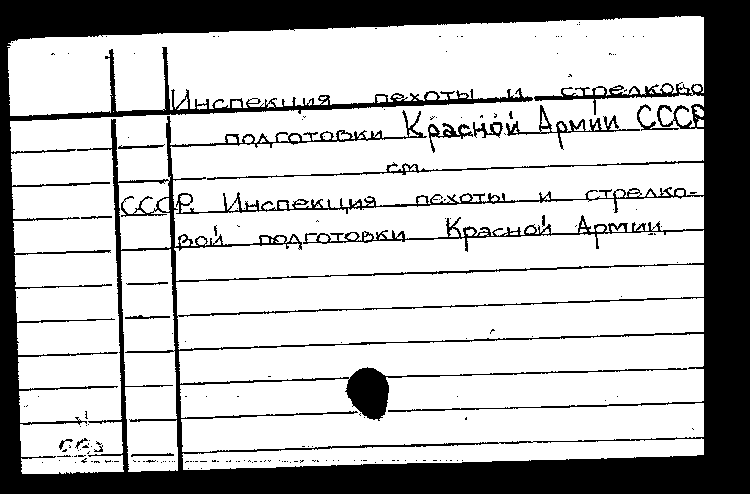 Инспекция пехоты и стрелково
подготовки Красной Армии СССР
см.
СССР. Инспекция пехоты и стрелко-
вой подготовки Красной Армии.